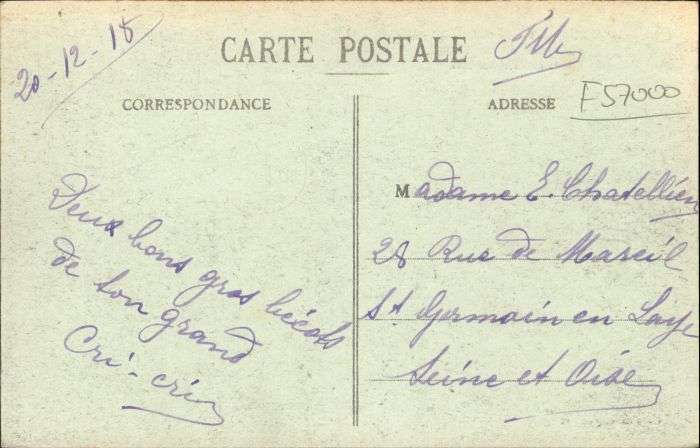 20-12-18
CARTE POSTALE
F M
CORRESPONDANCE
ADRESSE
F57000
Deux bons gros bécots
de ton grand
Cri-cri
Madame E. Chatellier
28 Rue de Mareil
St Germain en Laye
Seine et Oise